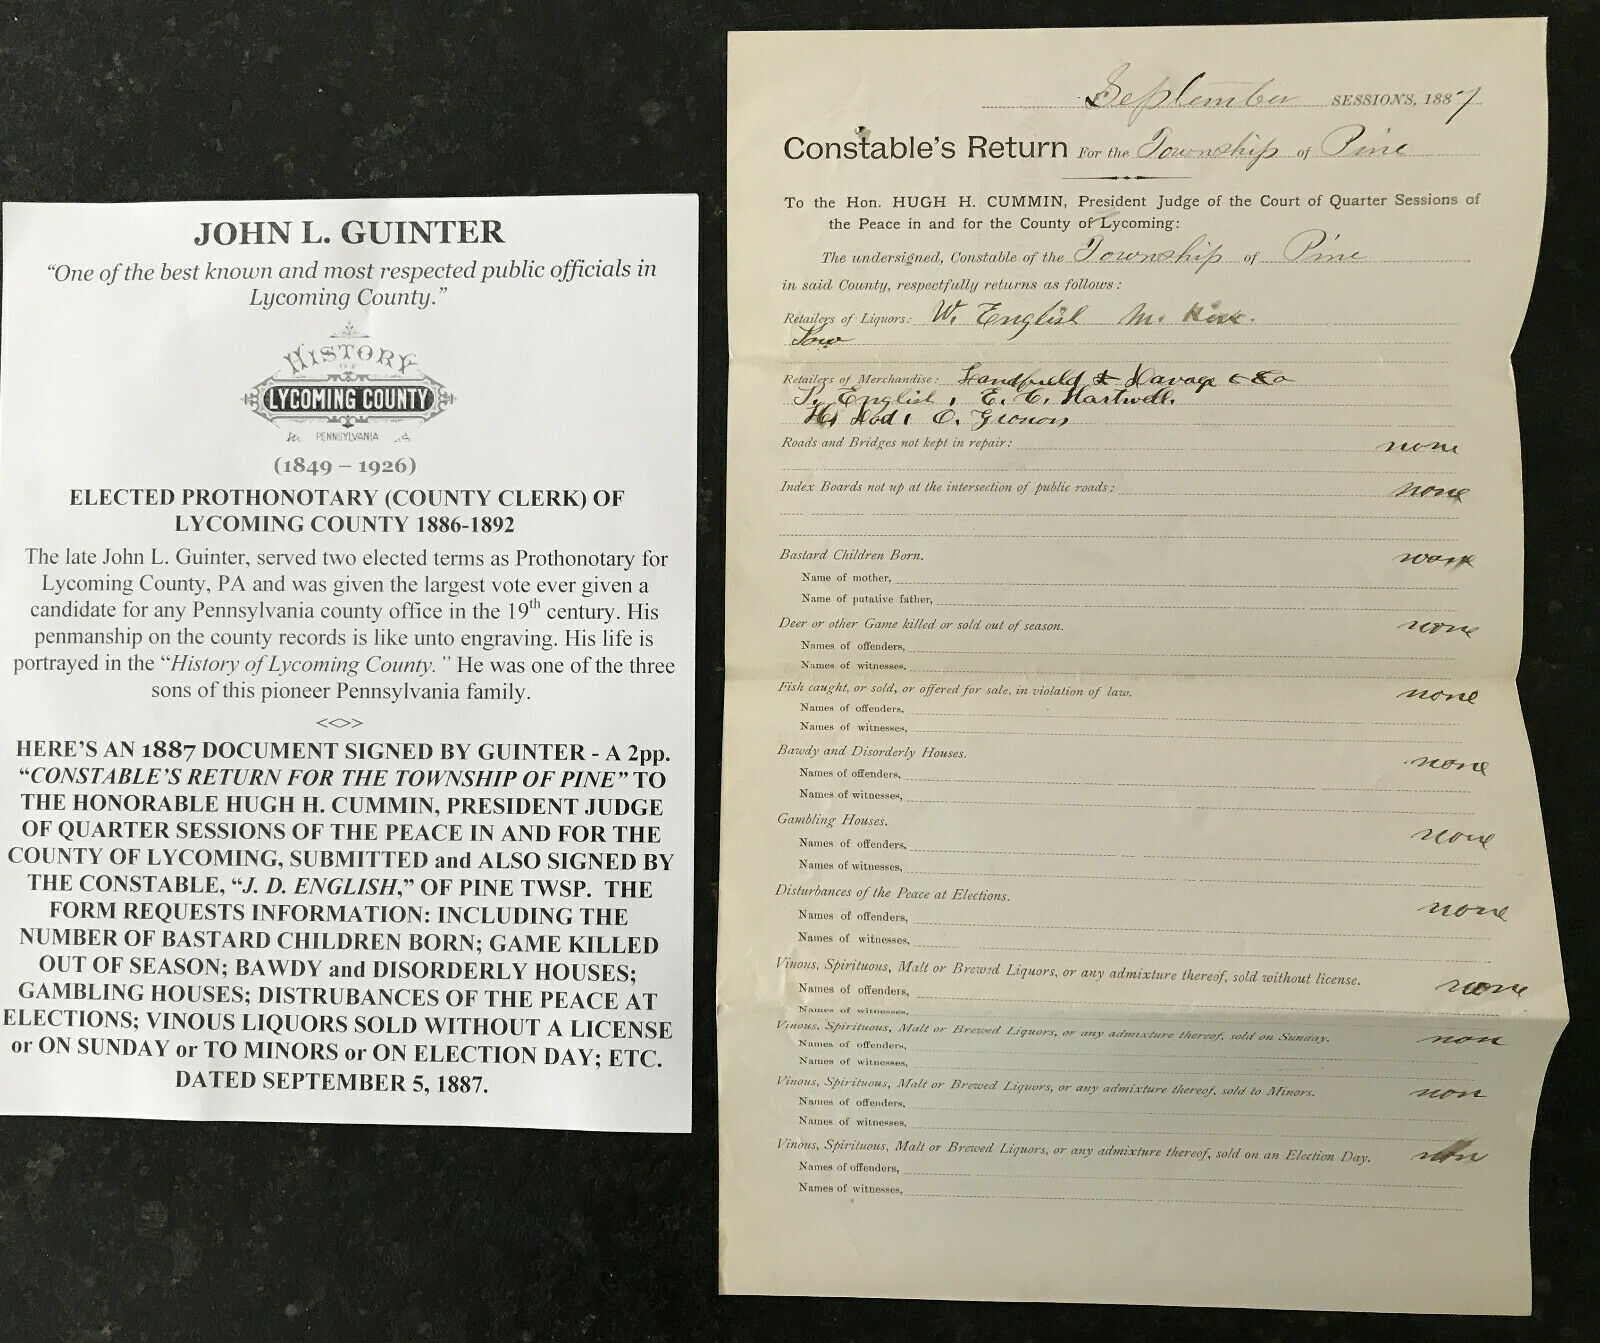 JOHN L. GUINTER
“One of the best known and most respected public officials in
Lycoming County.”
HISTORY
OF
LYCOMING COUNTY
PENNSYLVANIA
(1849 – 1926)
ELECTED PROTHONOTARY (COUNTY CLERK) OF
LYCOMING COUNTY 1886-1892
The late John L. Guinter, served two elected terms as Prothonotary for
Lycoming County, PA and was given the largest vote ever given a
candidate for any Pennsylvania county office in the 19th century. His
penmanship on the county records is like unto engraving. His life is
portrayed in the “History of Lycoming County.” He was one of the three
sons of this pioneer Pennsylvania family.
<<>>
HERE’S AN 1887 DOCUMENT SIGNED BY GUINTER - A 2pp.
“CONSTABLE’S RETURN FOR THE TOWNSHIP OF PINE” TO
THE HONORABLE HUGH H. CUMMIN, PRESIDENT JUDGE
OF QUARTER SESSIONS OF THE PEACE IN AND FOR THE
COUNTY OF LYCOMING, SUBMITTED and ALSO SIGNED BY
THE CONSTABLE, “J. D. ENGLISH,” OF PINE TWSP. THE
FORM REQUESTS INFORMATION: INCLUDING THE
NUMBER OF BASTARD CHILDREN BORN; GAME KILLED
OUT OF SEASON; BAWDY and DISORDERLY HOUSES;
GAMBLING HOUSES; DISTRUBANCES OF THE PEACE AT
ELECTIONS; VINOUS LIQUORS SOLD WITHOUT A LICENSE
or ON SUNDAY or TO MINORS or ON ELECTION DAY; ETC.
DATED SEPTEMBER 5, 1887.
September SESSIONS, 1887
Constable's Return For the Township of Pine
To the Hon. HUGH H. CUMMIN, President Judge of the Court of Quarter Sessions of
the Peace in and for the County of Lycoming:
The undersigned, Constable of the Township of Pine
in said County, respectfully returns as follows:
Retailers of Liquors: W. English M.
Retailers of Merchandise: & Co
English, E. C. Hartwell.
Roads and Bridges not kept in repair: none
Index Boards not up at the intersection of public roads: none
Bastard Children Born. none
Name of mother,
Name of putative father,
Deer or other Game killed or sold out of season. none
Names of offenders,
Names of witnesses,
Fish caught, or sold, or offered for sale, in violation of law. none
Names of offenders,
Names of witnesses,
Bawdy and Disorderly Houses. none
Names of offenders,
Names of witnesses,
Gambling Houses. none
Names of offenders,
Names of witnesses,
Disturbances of the Peace at Elections. none
Names of offenders,
Names of witnesses,
Vinous, Spirituous, Malt or Brewed Liquors, or any admixture thereof, sold without license. none
Names of offenders,
Names of witnesses,
Vinous, Spirituous, Malt or Brewed Liquors, or any admixture thereof, sold on Sunday. non
Names of offenders,
Names of witnesses,
Vinous, Spirituous, Malt or Brewed Liquors, or any admixture thereof, sold to Minors. non
Names of offenders,
Names of witnesses,
Vinous, Spirituous, Malt or Brewed Liquors, or any admixture thereof, sold on an Election Day. non
Names of offenders,
Names of witnesses,